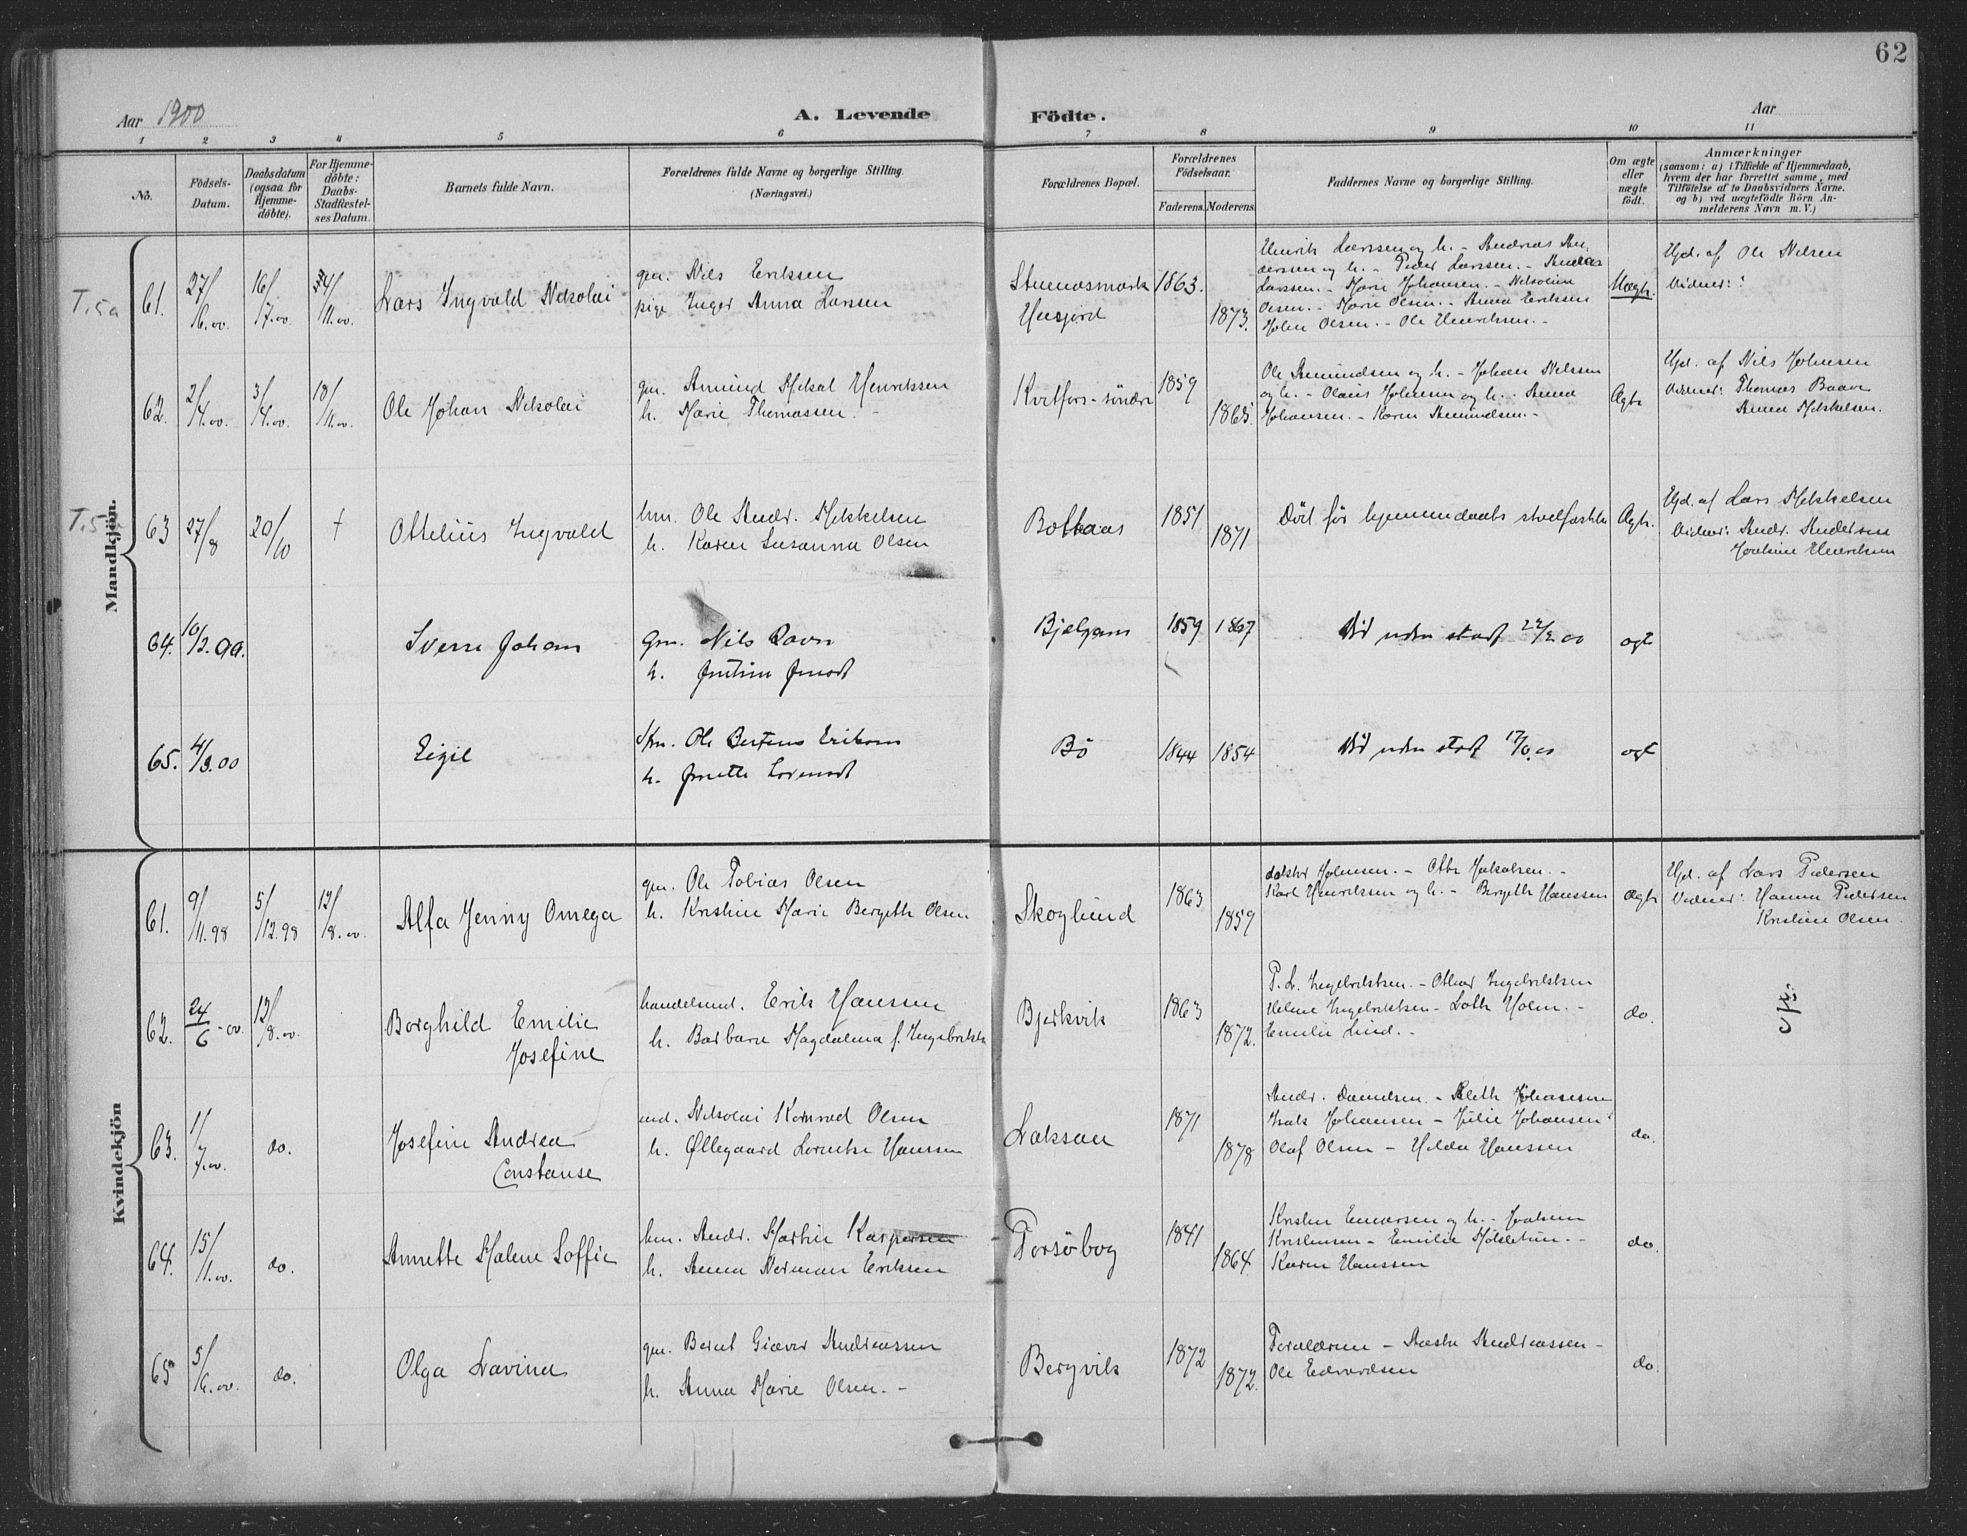 62
Aar 1900
A. Levende Födte.
Aar
1 2 3 4 5 6 7 8 9 10 11
No.
Födsels-Datum.
Daabsdatum (ogsaa for Hjemmedöbte).
For Hjemmedöbte: Daabs-Stadfæstelses Datum.
Barnets fulde Navn.
Forældrenes fulde Navne og borgerlige Stilling.
(Næringsvei.)
Forældrenes Bopæl.
Forældrenes Födselsaar.
Faderens. Moderens.
Faddernes Navne og borgerlige Stilling.
Om ægte eller uægte födt.
Anmærkninger
(saasom: a) i Tilfælde af Hjemmedaab, hvem der har forrettet samme, med Tilföielse af to Daabsvidners Navne, og b) ved uægtefödte Börn Anmelderens Navn m. V.)
Mandkjön.
T. 5a 61. 27/6.00 16/7.00 4/11.00 Lars Ingvald Nikolai
gm. Nils Eriksen
pige Inger Anna Larsen
1863. 1873.
Henrik Larssen og h. - Andreas Andersen og h. - Peder Larssen. - Andreas
Larssen. - Marie Johansen. -
Olsen. - Marie Olsen. - Anna Eriksen
Olsen. - Ole Henriksen. -
Uægte.
Hjd. af Ole Nilsen
Vidner:
62. 2/4.00 3/4.00 18/11.00 Ole Johan Nikolai
gm. Amund Mikal Henriksen
h. Marie Thomassen. -
Kvitfors-söndre 1859 1865.
Ole Amundsen og h. - Johan Nilsen
og h. - Olaus Johnsen og h. - Anna
Johansen. - Karen Amundsen. -
Ægte
Hjd. af Nils Johnsen
Vidner: Thomas Baar
Anna Mikkelsen.
T. 5 63 27/8 20/10 † Ottelius Ingvald
hm. Ole Andr. Mikkelsen
h. Karen Susanna Olsen
Botnaas 1851 1871
Död før hjemmedaabs stadfæstelse
Ægte.
Hjd. af Lars Mikkelsen
Vidner: Andr. Andersen
Joakine Henriksen
64. 10/2.99. Sverre Johan
gm. Nils Ravn
h.
1859 1867
Död uden stadf 22/2.00
ægte
65. 4/3.00 Eigil
Ole Eriksen
h.
Bö 1844 1854
Död uden stadf
ægte
Kvindekjön
61. 9/11.98 5/12.98 12/8.00 Alfa Jenny Omega
gm. Ole Tobias Olsen
h. Kristine Marie Bergeth Olsen
Skoglund 1863 1859
Johnsen. - Otte Jakobsen. -
Karl Henriksen og h. - Bergeth Hanssen
Ægte
Hjd. af Lars Pedersen
Vidner: Hanna Pedersen
Kristine Olsen.
62. 24/6-00 12/8.00 Borghild Emilie
Josefine
handelsmd. Erik Hanssen
h. Barbara Magdalena f. Ingebriktsen
Bjerkvik 1863 1872.
P. L. Ingebriktsen. - Othar Ingebriktsen
Helene Ingebriktsen - Loth Holm. -
Emilie Lind. -
do.
63. 1/7.00 do. Josefine Andrea
Constanse
Nikolai Konrad Olsen
h. Øllegaard Hanssen
Laksaa 1871 1878
Andr. Danielsen - Johansen
Isak Johansen - Julie Johansen
Olaf Olsen - Hilda Hanssen
do.
64. 15/11.00 do. Annette Malene Soffie
hm. Andr. Martin Kaspersen
h. Anna Norman Eriksen
Forsöbog 1841 1864.
Kristen Einarsen og h. - Joakim
Kristensen - Emilie
Karen Hanssen
do.
65 5/6.00 do. Olga Lavina
gm. Berent Giæver Andreassen
h. Anna Marie Olsen. -
Bergvik 1872 1872.
Forældrene - Aasta Andreassen -
Ole Edvardsen
do.